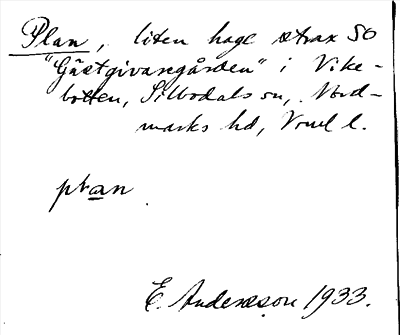 Plan, liten hage strax SO
"Gästgivaregården" i Vike-
botten, Silbodals sn, Nord-
marks hd, Vrml l.
plan
E. Andersson 1933.